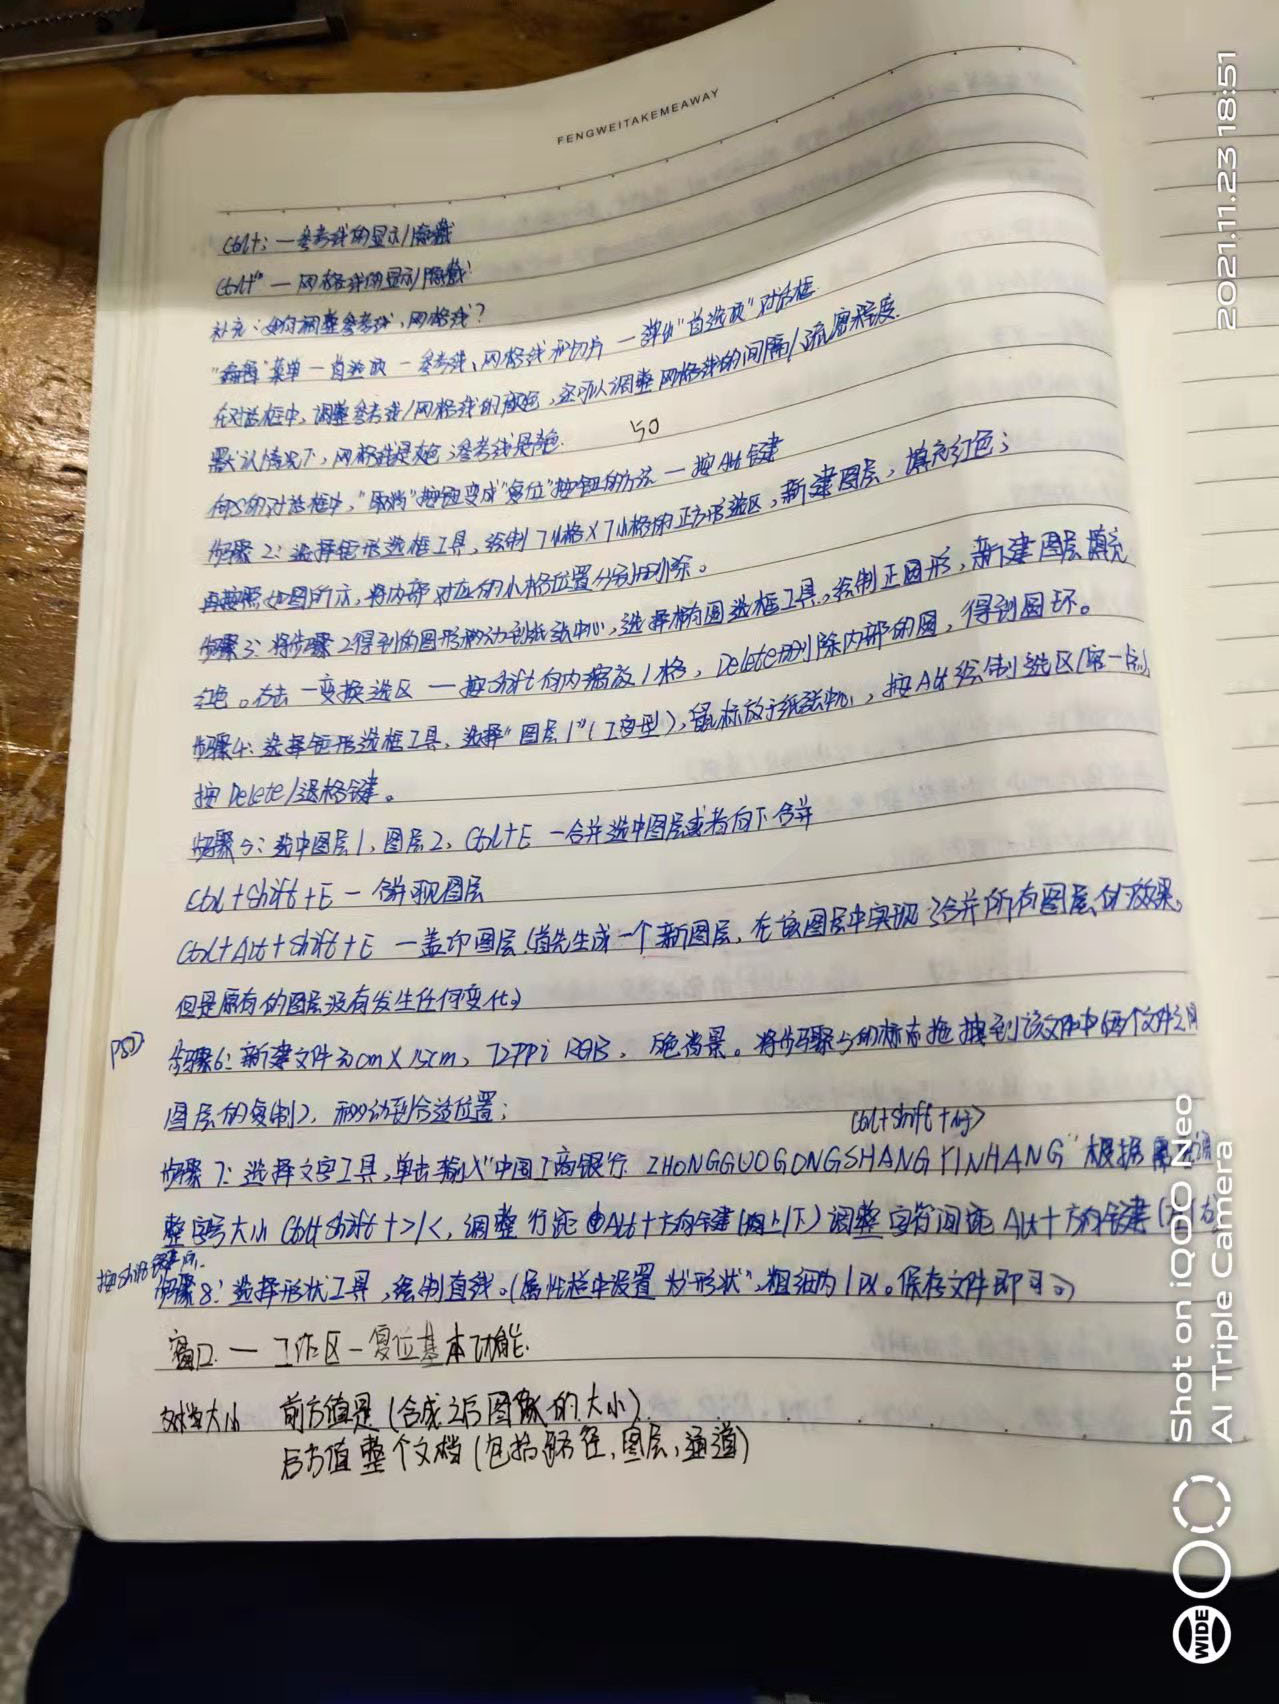 FENGWEITAKEMEAWAY
Ctrl+; — 参考线的显示/隐藏
Ctrl+" — 网格线的显示/隐藏
补充:如何调整参考线、网格线?
"编辑"菜单 — 首选项 — 参考线、网格线和切片 — 弹出"首选项"对话框.
在对话框中,调整参考线/网格线的颜色,还可以调整网格线的间隔/疏密程度.
默认情况下,网格线是灰色,参考线是青色.
50
何S的对话框中,"取消"按钮变成"复位"按钮的方法 — 按Alt键
步骤2:选择矩形选框工具,绘制7小格×7小格的正方形选区,新建图层,填充红色;
再按照如图所示,将内部对应的小格位置分别删除。
步骤3:将步骤2得到的图形移动到纸张中心,选择椭圆选框工具,绘制正圆形,新建图层填充
红色。右击—变换选区 — 按shift向内缩放1格,Delete删除内部的圆,得到圆环。
步骤4:选择矩形选框工具,选择"图层1"(工字型),鼠标放于纸张中心,按Alt绘制选区(窄一点)
按Delete/退格键。
步骤5:选中图层1,图层2,Ctrl+E —合并选中图层或者向下合并
Ctrl+Shift+E — 合并可见图层
Ctrl+Alt+Shift+E —盖印图层(首先生成一个新图层,在该图层中实现了合并所有图层的效果,
但是原有的图层没有发生任何变化)
步骤6:新建文件30cm×15cm,72PPi RGB,白色背景。将步骤5的标志拖拽到该文件中(两个文件之间
图层的复制),移动到合适位置;
Ctrl+Shift+
步骤7:选择文字工具,单击输入"中国工商银行 ZHONGGUOGONGSHANGYINHANG"根据需要调
整字号大小Ctrl+Shift+>/<,调整行距Alt+方向键(向上/下)调整字符间距Alt+方向键(左/右)
按Shift
步骤8:选择形状工具,绘制直线。(属性栏中设置为"形状",粗细为1px。保存文件即可。)
窗口 — 工作区—复位基本功能.
文档大小 前方值是(合成之后图像的大小)
后方值整个文档(包括路径,图层,通道)
2021.11.23 18:51
Shot on iQOO Neo
AI Triple Camera
WIDE